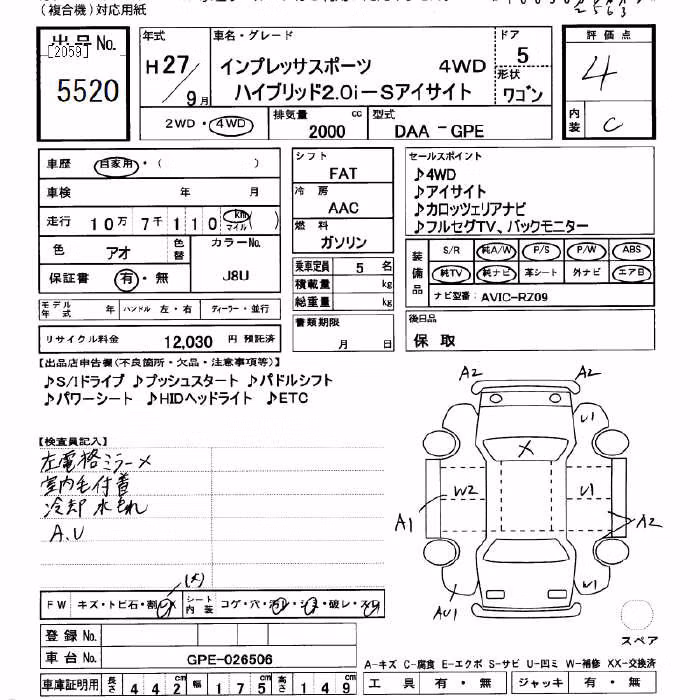 (複合機)対応用紙
2563
出品No.
[2059]
5520
年式
H27/9月
車名・グレード
インプレッサスポーツ 4WD
ハイブリッド2.0i-Sアイサイト
ドア
5
形状
ワゴン
評価点
4
内装
C
2WD・4WD
排気量 2000 cc
型式 DAA-GPE
車歴 自家用・( )
車検 年 月
走行 10万7千110 km マイル ( )
色 アオ 色替
カラーNo. J8U
保証書 有・無
シフト
FAT
冷房
AAC
燃料
ガソリン
乗車定員 5 名
積載量 kg
総重量 kg
セールスポイント
♪4WD
♪アイサイト
♪カロッツェリアナビ
♪フルセグTV、バックモニター
装備品
S/R 純A/W P/S P/W ABS
純TV 純ナビ 革シート 外ナビ エアB
ナビ型番: AVIC-RZ09
モデル年式 年 ハンドル 左・右 ディーラー・並行
リサイクル料金 12,030 円 預託済
書類期限
月 日
後日品
保 取
【出品店申告欄(不良箇所・欠品・注意事項等)】
♪S/Iドライブ ♪プッシュスタート ♪パドルシフト
♪パワーシート ♪HIDヘッドライト ♪ETC
【検査員記入】
左電格ミラーメ
室内毛付着
冷却水もれ
A.U
A2 A2
U1
X
W2 U1
A1 A2
AU1
(X)
FW キズ・トビ石・割・X シート内装 コゲ・穴・汚レ・シミ・破レ・スレ
スペア
登録No.
車台No. GPE-026506
A-キズ C-腐食 E-エクボ S-サビ U-凹ミ W-補修 XX-交換済
車庫証明用 長さ 442 cm 幅 175 cm 高さ 149 cm
工具 有・無 ジャッキ 有・無